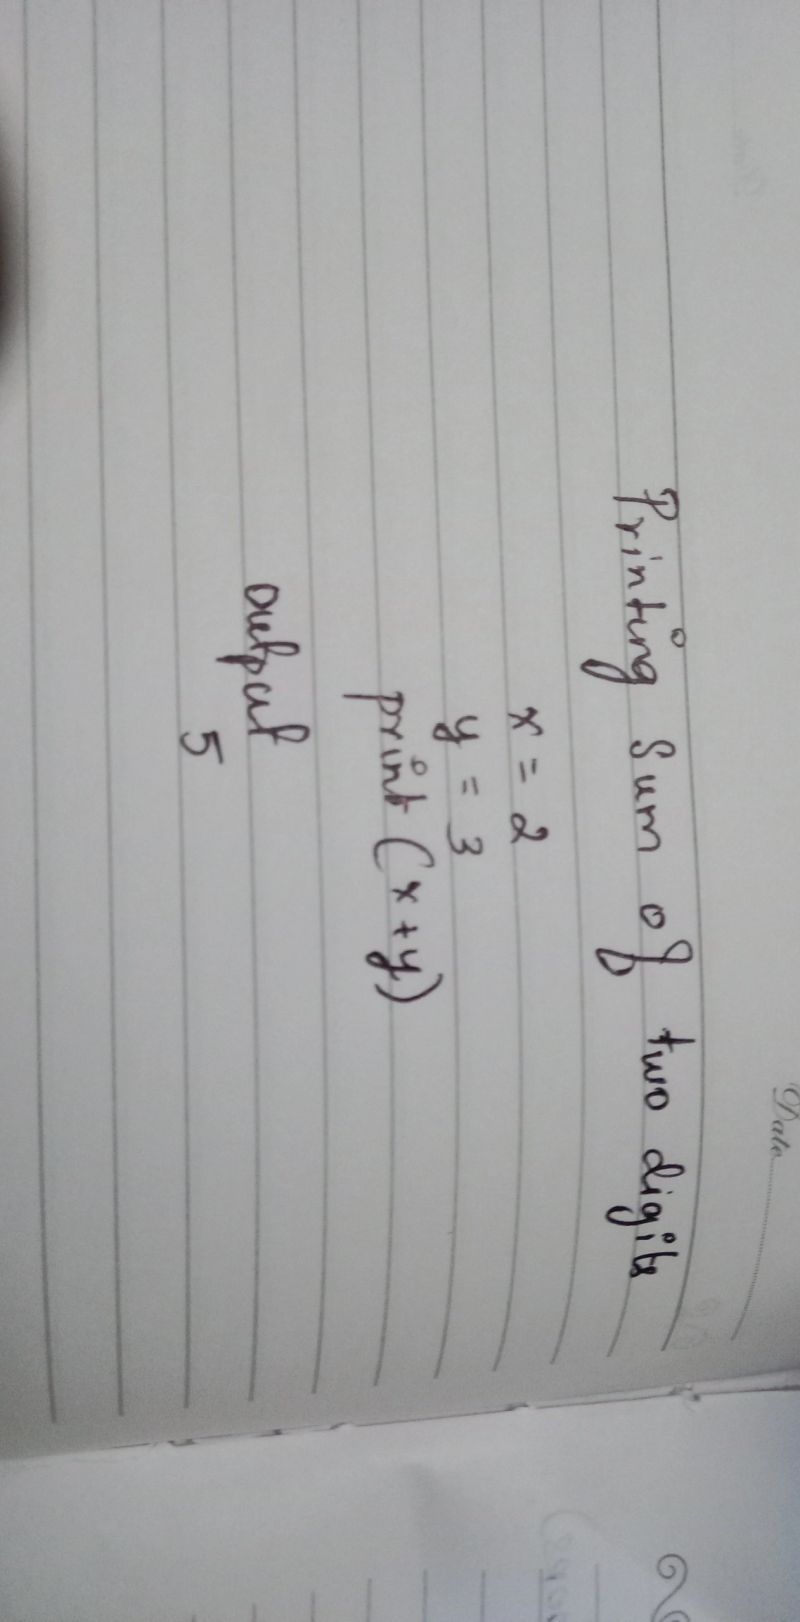 Date
Printing sum of two digits
x = 2
y = 3
print (x+y)
output
5